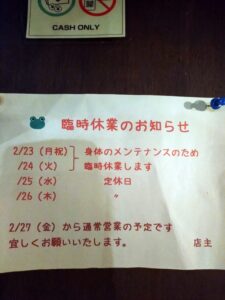 CASH ONLY
臨時休業のお知らせ
2/23（月祝） 身体のメンテナンスのため
/24（火） 臨時休業します
/25（水） 定休日
/26（木） 〃
2/27（金）から通常営業の予定です
宜しくお願いいたします。 店主